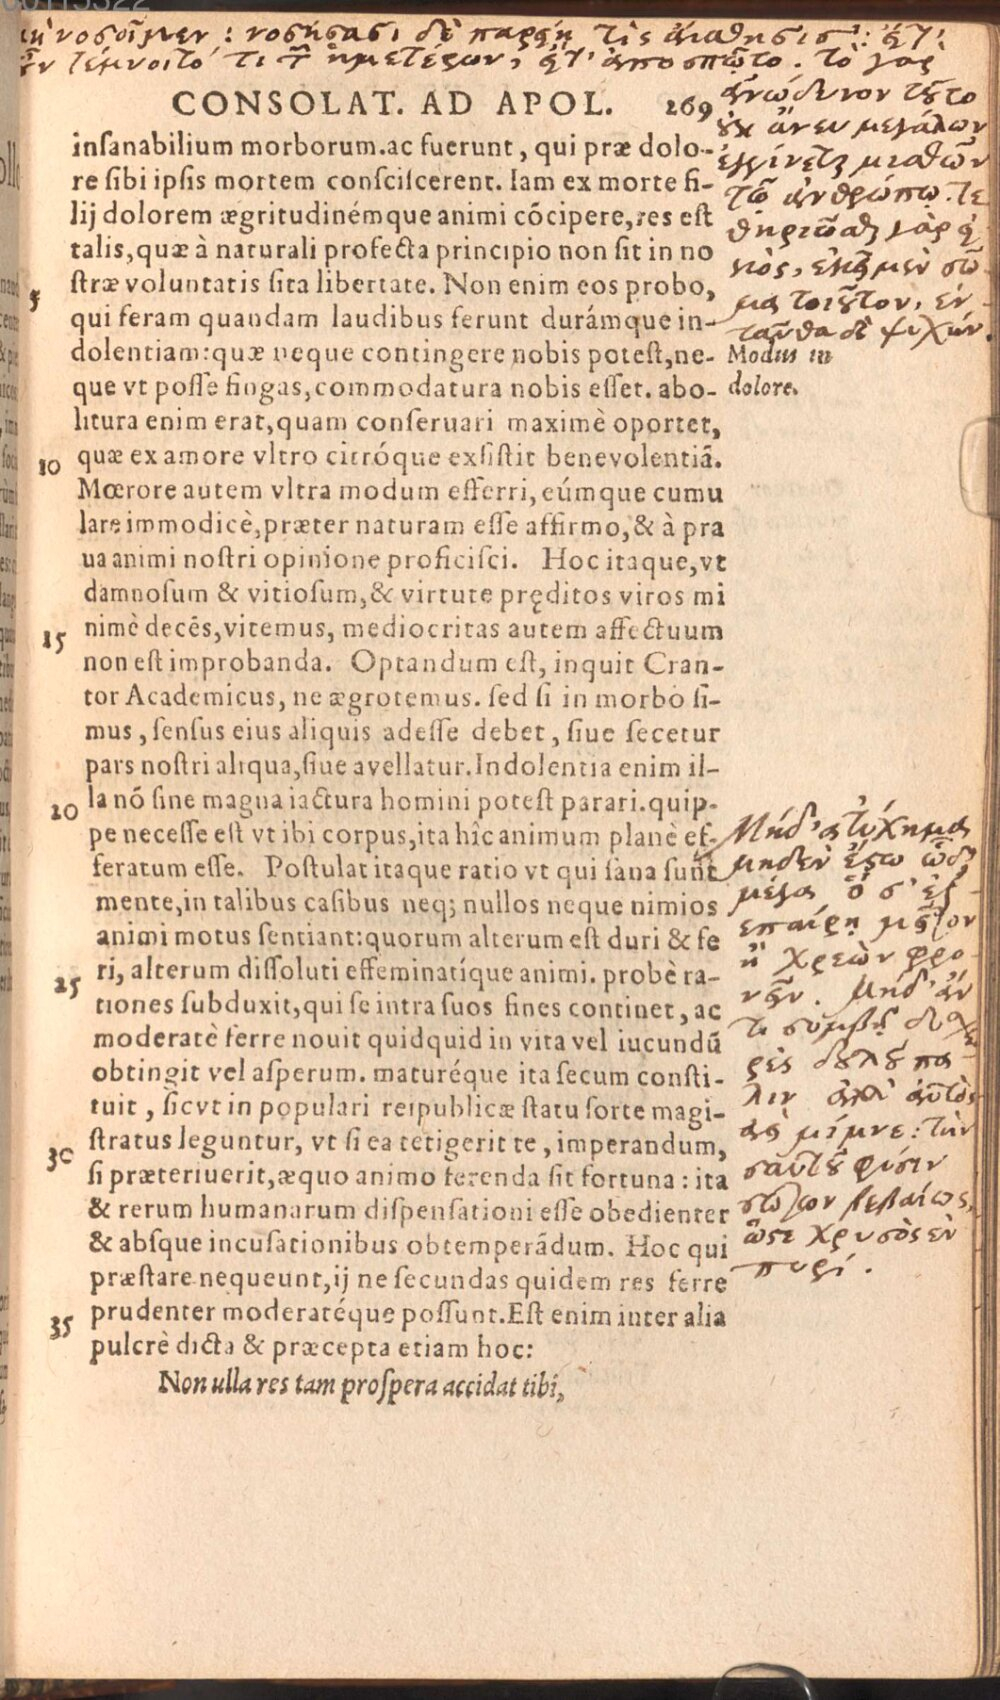 μὴ νοσοῖμεν : νοσήσασι δὲ παρείη τὶς αἴσθησις : εἴτ'
οὖν τέμνοιτό τι τῶν ἡμετέρων, εἴτ' ἀποσπῷτο. τὸ γὰρ
ἀνώδυνον τοῦτο
οὐκ ἄνευ μεγάλων
ἐγγίνεται μισθῶν
τῶ ἀνθρώπῳ. τε
θηριῶσθαι γὰρ εἰ
κὸς, ἐκεῖ μὲν σῶ
μα τοιοῦτον, ἐν
ταῦθα δὲ ψυχήν.
CONSOLAT. AD APOL. 269
insanabilium morborum. ac fuerunt, qui præ dolo-
re sibi ipsis mortem consciscerent. Iam ex morte fi-
lij dolorem ægritudinémque animi cōcipere, res est
talis, quæ à naturali profecta principio non sit in no
5 stræ voluntatis sita libertate. Non enim eos probo,
qui feram quandam laudibus ferunt durámque in-
dolentiam: quæ neque contingere nobis potest, ne-
que vt posse fingas, commodatura nobis esset. abo-
litura enim erat, quam conseruari maximè oportet,
10 quæ ex amore vltro citróque exsistit benevolentiā.
Mœrore autem vltra modum efferri, eúmque cumu
lare immodicè, præter naturam esse affirmo, & à pra
ua animi nostri opinione proficisci. Hoc itaque, vt
damnosum & vitiosum, & virtute pręditos viros mi
15 nimè decēs, vitemus, mediocritas autem affectuum
non est improbanda. Optandum est, inquit Cran-
tor Academicus, ne ægrotemus. sed si in morbo si-
mus, sensus eius aliquis adesse debet, siue secetur
pars nostri aliqua, siue avellatur. Indolentia enim il-
20 la nō sine magna iactura homini potest parari. quip-
pe necesse est vt ibi corpus, ita hîc animum planè ef-
feratum esse. Postulat itaque ratio vt qui sana sunt
mente, in talibus casibus neq; nullos neque nimios
animi motus sentiant: quorum alterum est duri & fe
25 ri, alterum dissoluti effeminatíque animi. probè ra-
tiones subduxit, qui se intra suos fines continet, ac
moderatè ferre nouit quidquid in vita vel iucundū
obtingit vel asperum. maturéque ita secum consti-
tuit, sicvt in populari reipublicæ statu sorte magi-
30 stratus leguntur, vt si ea tetigerit te, imperandum,
si præteriuerit, æquo animo ferenda sit fortuna: ita
& rerum humanarum dispensationi esse obedienter
& absque incusationibus obtemperādum. Hoc qui
præstare nequeunt, ij ne secundas quidem res ferre
35 prudenter moderatéque possunt. Est enim inter alia
pulcrè dicta & præcepta etiam hoc:
Non ulla res tam prospera accidat tibi,
Modus in
dolore.
Μηδ' ἀτύχημα
μηδὲν ἔστω ὧδε
μέγα ὅ σ' ἐξ
επαίρῃ μεῖζον
ἢ χρεὼν φρο
νεῖν. Μηδ' ἄν
τι συμβῇ δυσχε
ρὲς δουλοῦ πά
λιν ἀλλ' αὑτὸς
ἀς μίμνε : τὴν
σαυτοῦ φύσιν
σώζων βεβαίως,
ὥστε χρυσὸς ἐν
πυρί.